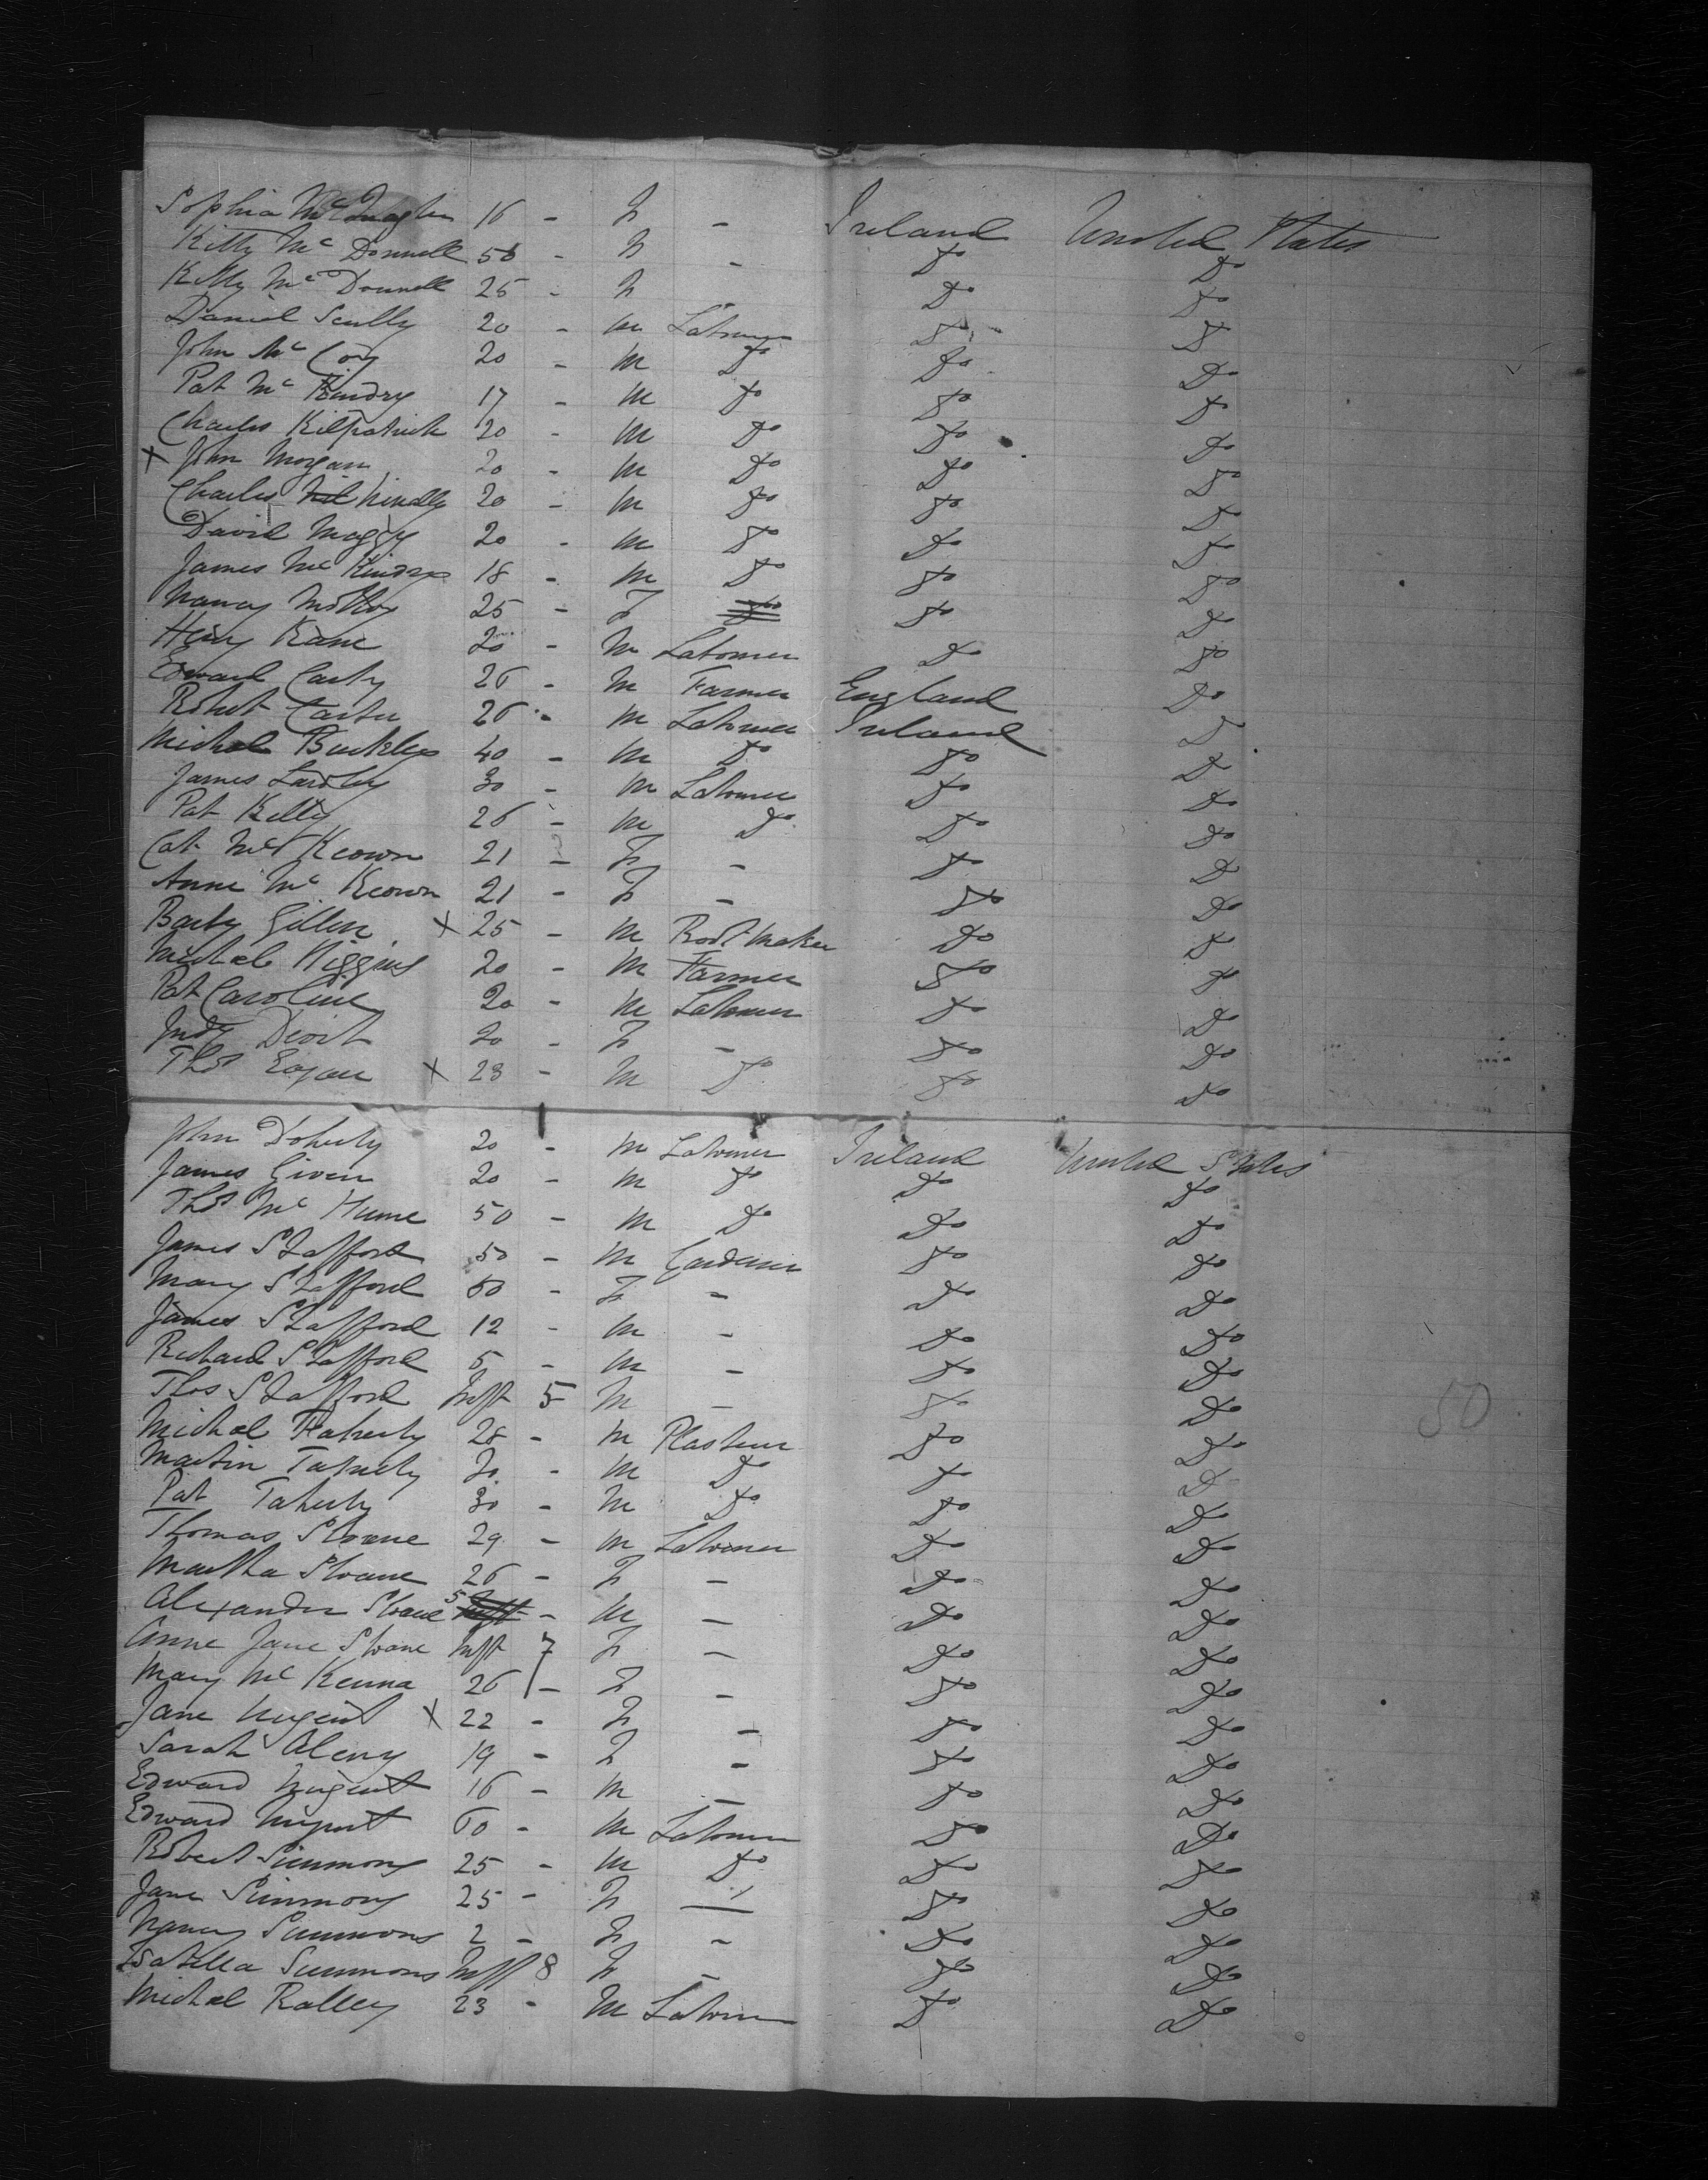 Sophia 16 - F - Ireland United States
Kitty Mc Donnell 50 - F - Do Do
Kitty Mc Donnell 25 - F Do Do
Daniel Scully 20 - M Labourer Do Do
John Mc Coy 20 - M Do Do Do
Pat Mc Kendry 17 - M Do Do Do
Charles Kilpatrick 20 - M Do Do Do
X John Morgan 20 - M Do Do Do
Charles 20 - M Do Do Do
David 20 - M Do Do Do
James Mc Kindry 18 - M Do Do Do
Nancy 25 - F Do Do Do
Henry Kane 20 - M Labourer Do Do
Edward Carty 26 - M Farmer England Do
Robert Carter 26 - M Labourer Ireland Do
Michael Buckley 40 - M Do Do Do
James 30 - M Labourer Do Do
Pat Kelly 26 - M Do Do Do
Cat Mc Keown 21 - F - Do Do
Anne Mc Keown 21 - F - Do Do
Barty Gillen X 25 - M Boot Maker Do Do
Michael Higgins 20 - M Farmer Do Do
Pat Caroline 20 - M Labourer Do Do
Judy 20 - F - Do Do
Thos Eagan X 23 - M Do Do Do
John Doherty 20 - M Labourer Ireland United States
James Given 20 - M Do Do Do
Thos Mc Hume 50 - M Do Do Do
James Stafford 50 - M Gardener Do Do
Mary Stafford 50 - F - Do Do
James Stafford 12 - M - Do Do
Richard Stafford 5 - M - Do Do
Thos Stafford Inft 5 M - Do Do
Michal Flaherty 28 - M Plasterer Do Do
Martin Taherty - M Do Do Do
Pat Taherty 30 - M Do Do Do
50
Thomas Sloane 29 - M Labourer Do Do
Martha Sloane 26 - F - Do Do
Alexander Sloane 5 Inft - M - Do Do
Anne Jane Sloane Inft 7 F - Do Do
Mary Mc Kenna 26 - F - Do Do
Jane Nugent X 22 - F - Do Do
Sarah 19 - F - Do Do
Edward Nugent 16 - M - Do Do
Edward Nugent 60 - M Labourer Do Do
Robert Simmons 25 - M Do Do Do
Jane Simmons 25 - F - Do Do
Nancy Simmons 2 - F - Do Do
Isabella Simmons Inft 8 F - Do Do
Michal Ralley 23 - M Labourer Do Do